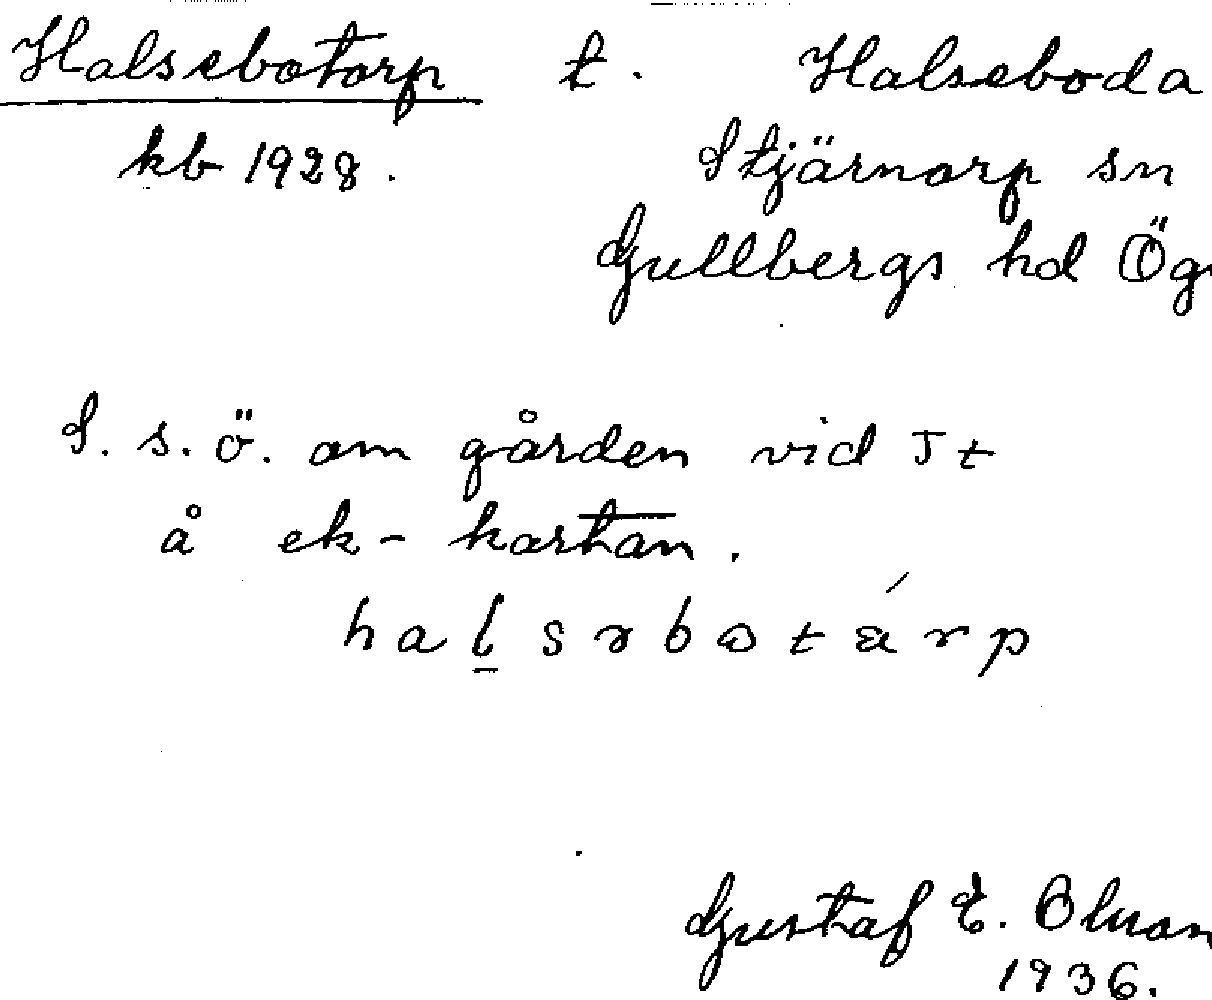 Halsebotorp t. Halseboda
kb 1928. Stjärnorp sn
Gullbergs hd Ög
S. s. ö. om gården vid Jt
å ek- kartan.
Gustaf E. Olsson
1936.